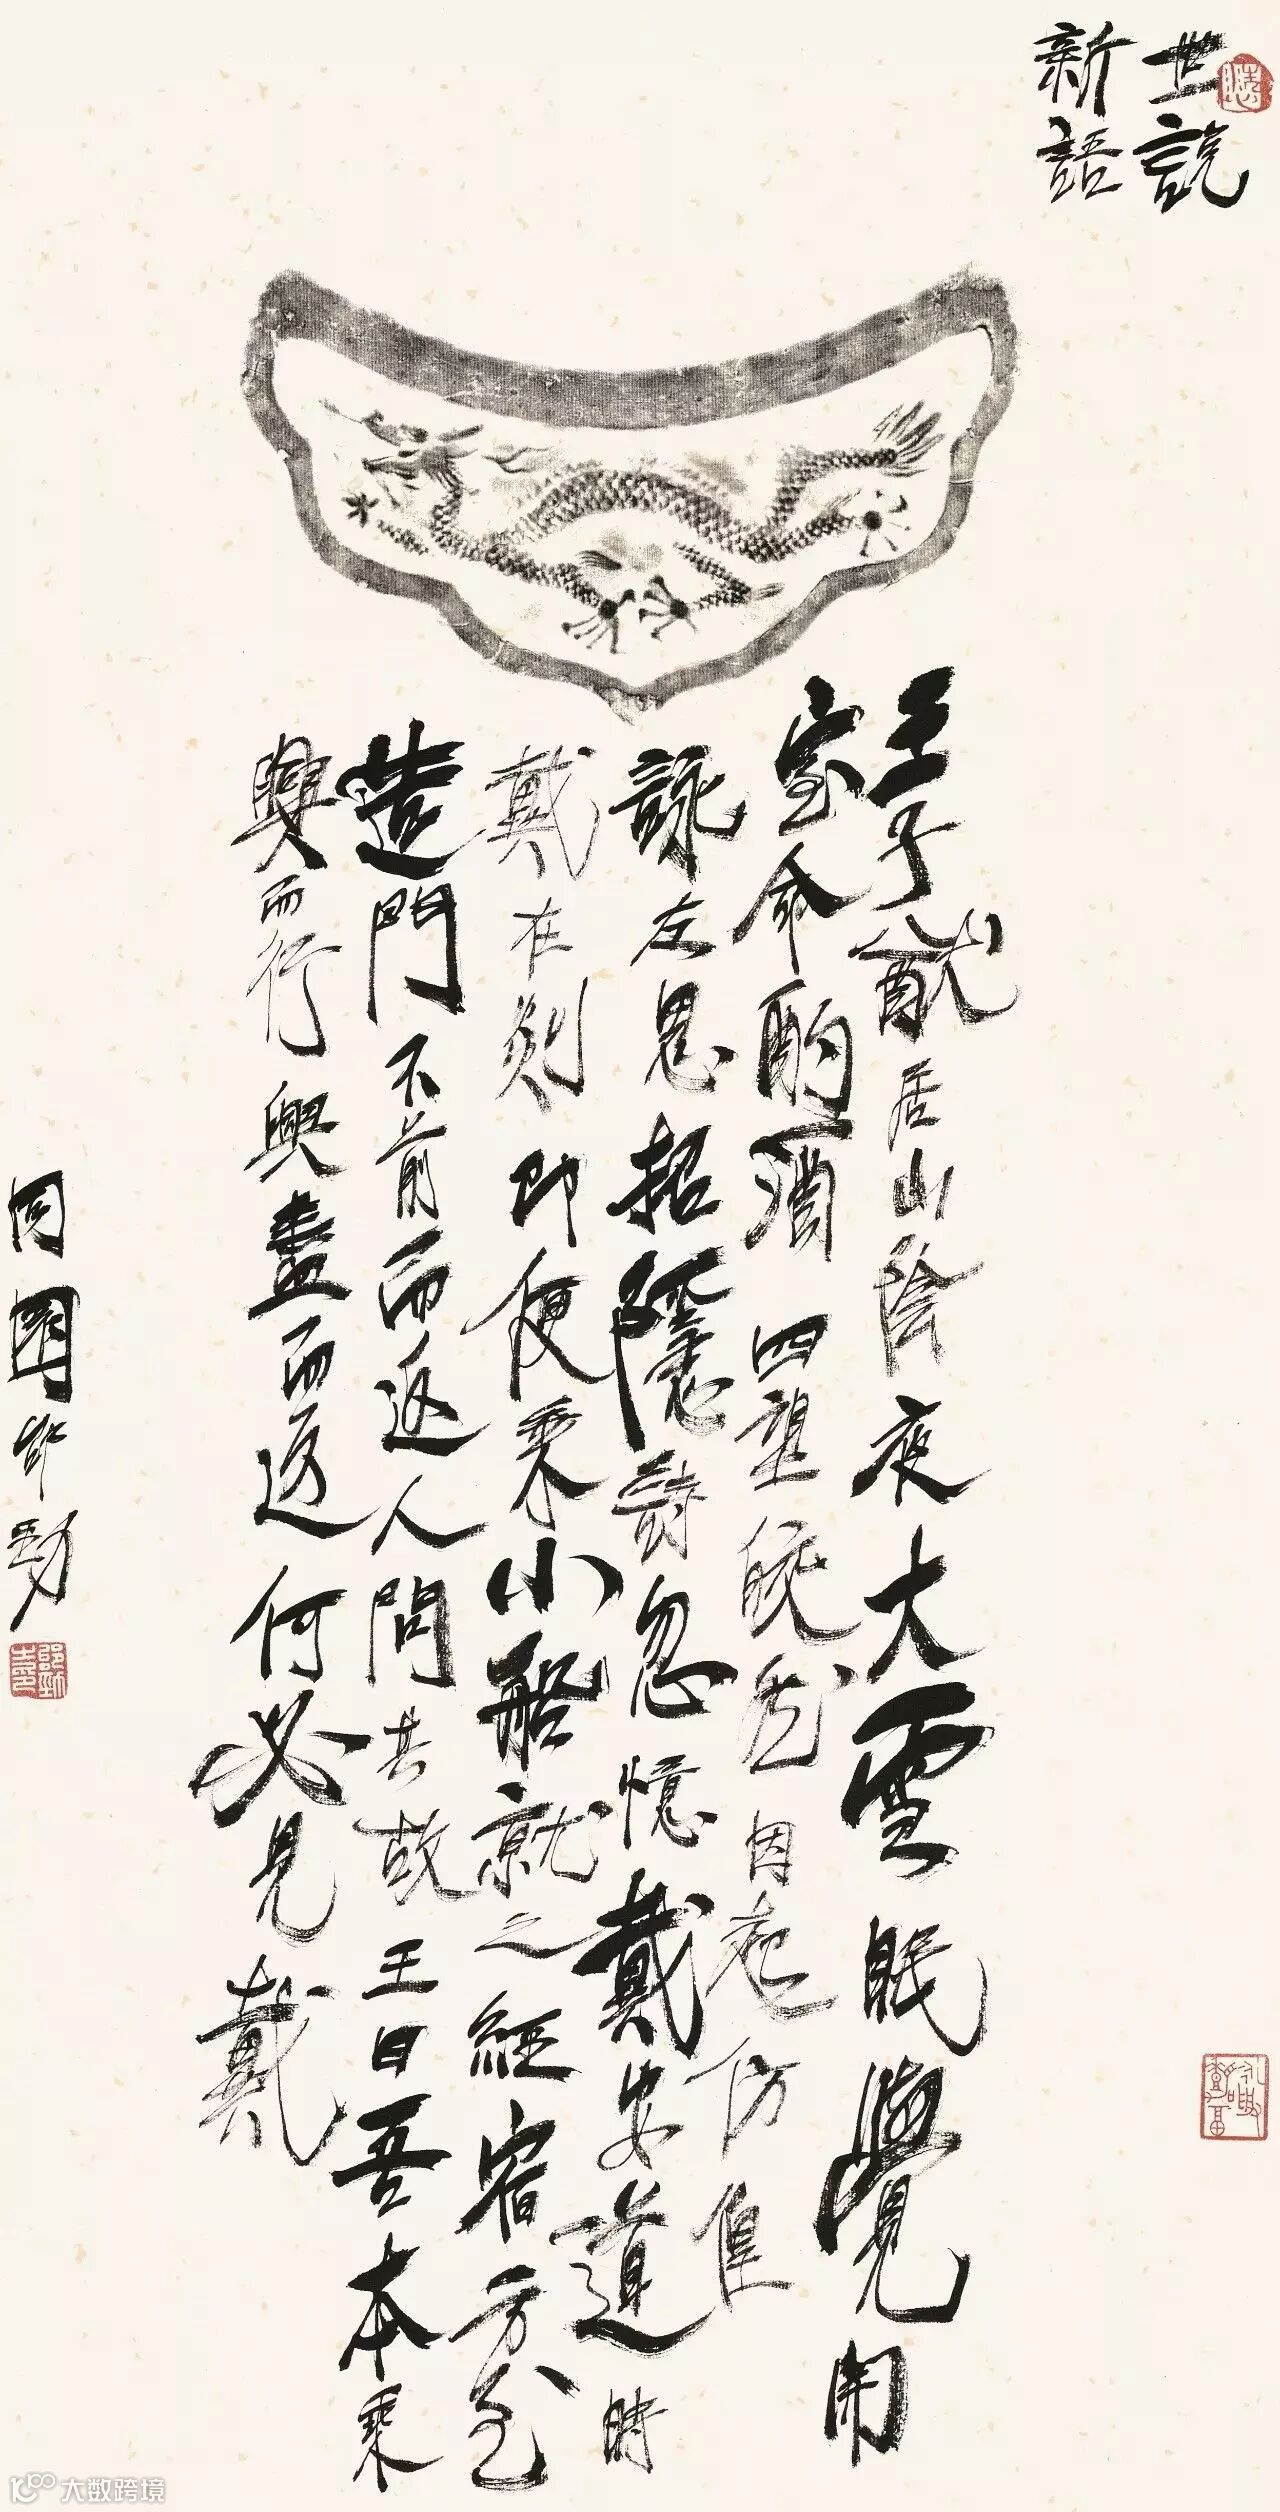 世說
新語
王子猷居山陰夜大雪眠覺開
室命酌酒四望皎然因起仿
詠左思招隱詩忽憶戴安道時
戴在剡即便乘小船就之經宿方至
造門不前而返人問其故王曰吾本乘
興而行興盡而返何必見戴
同 勁
大数跨境